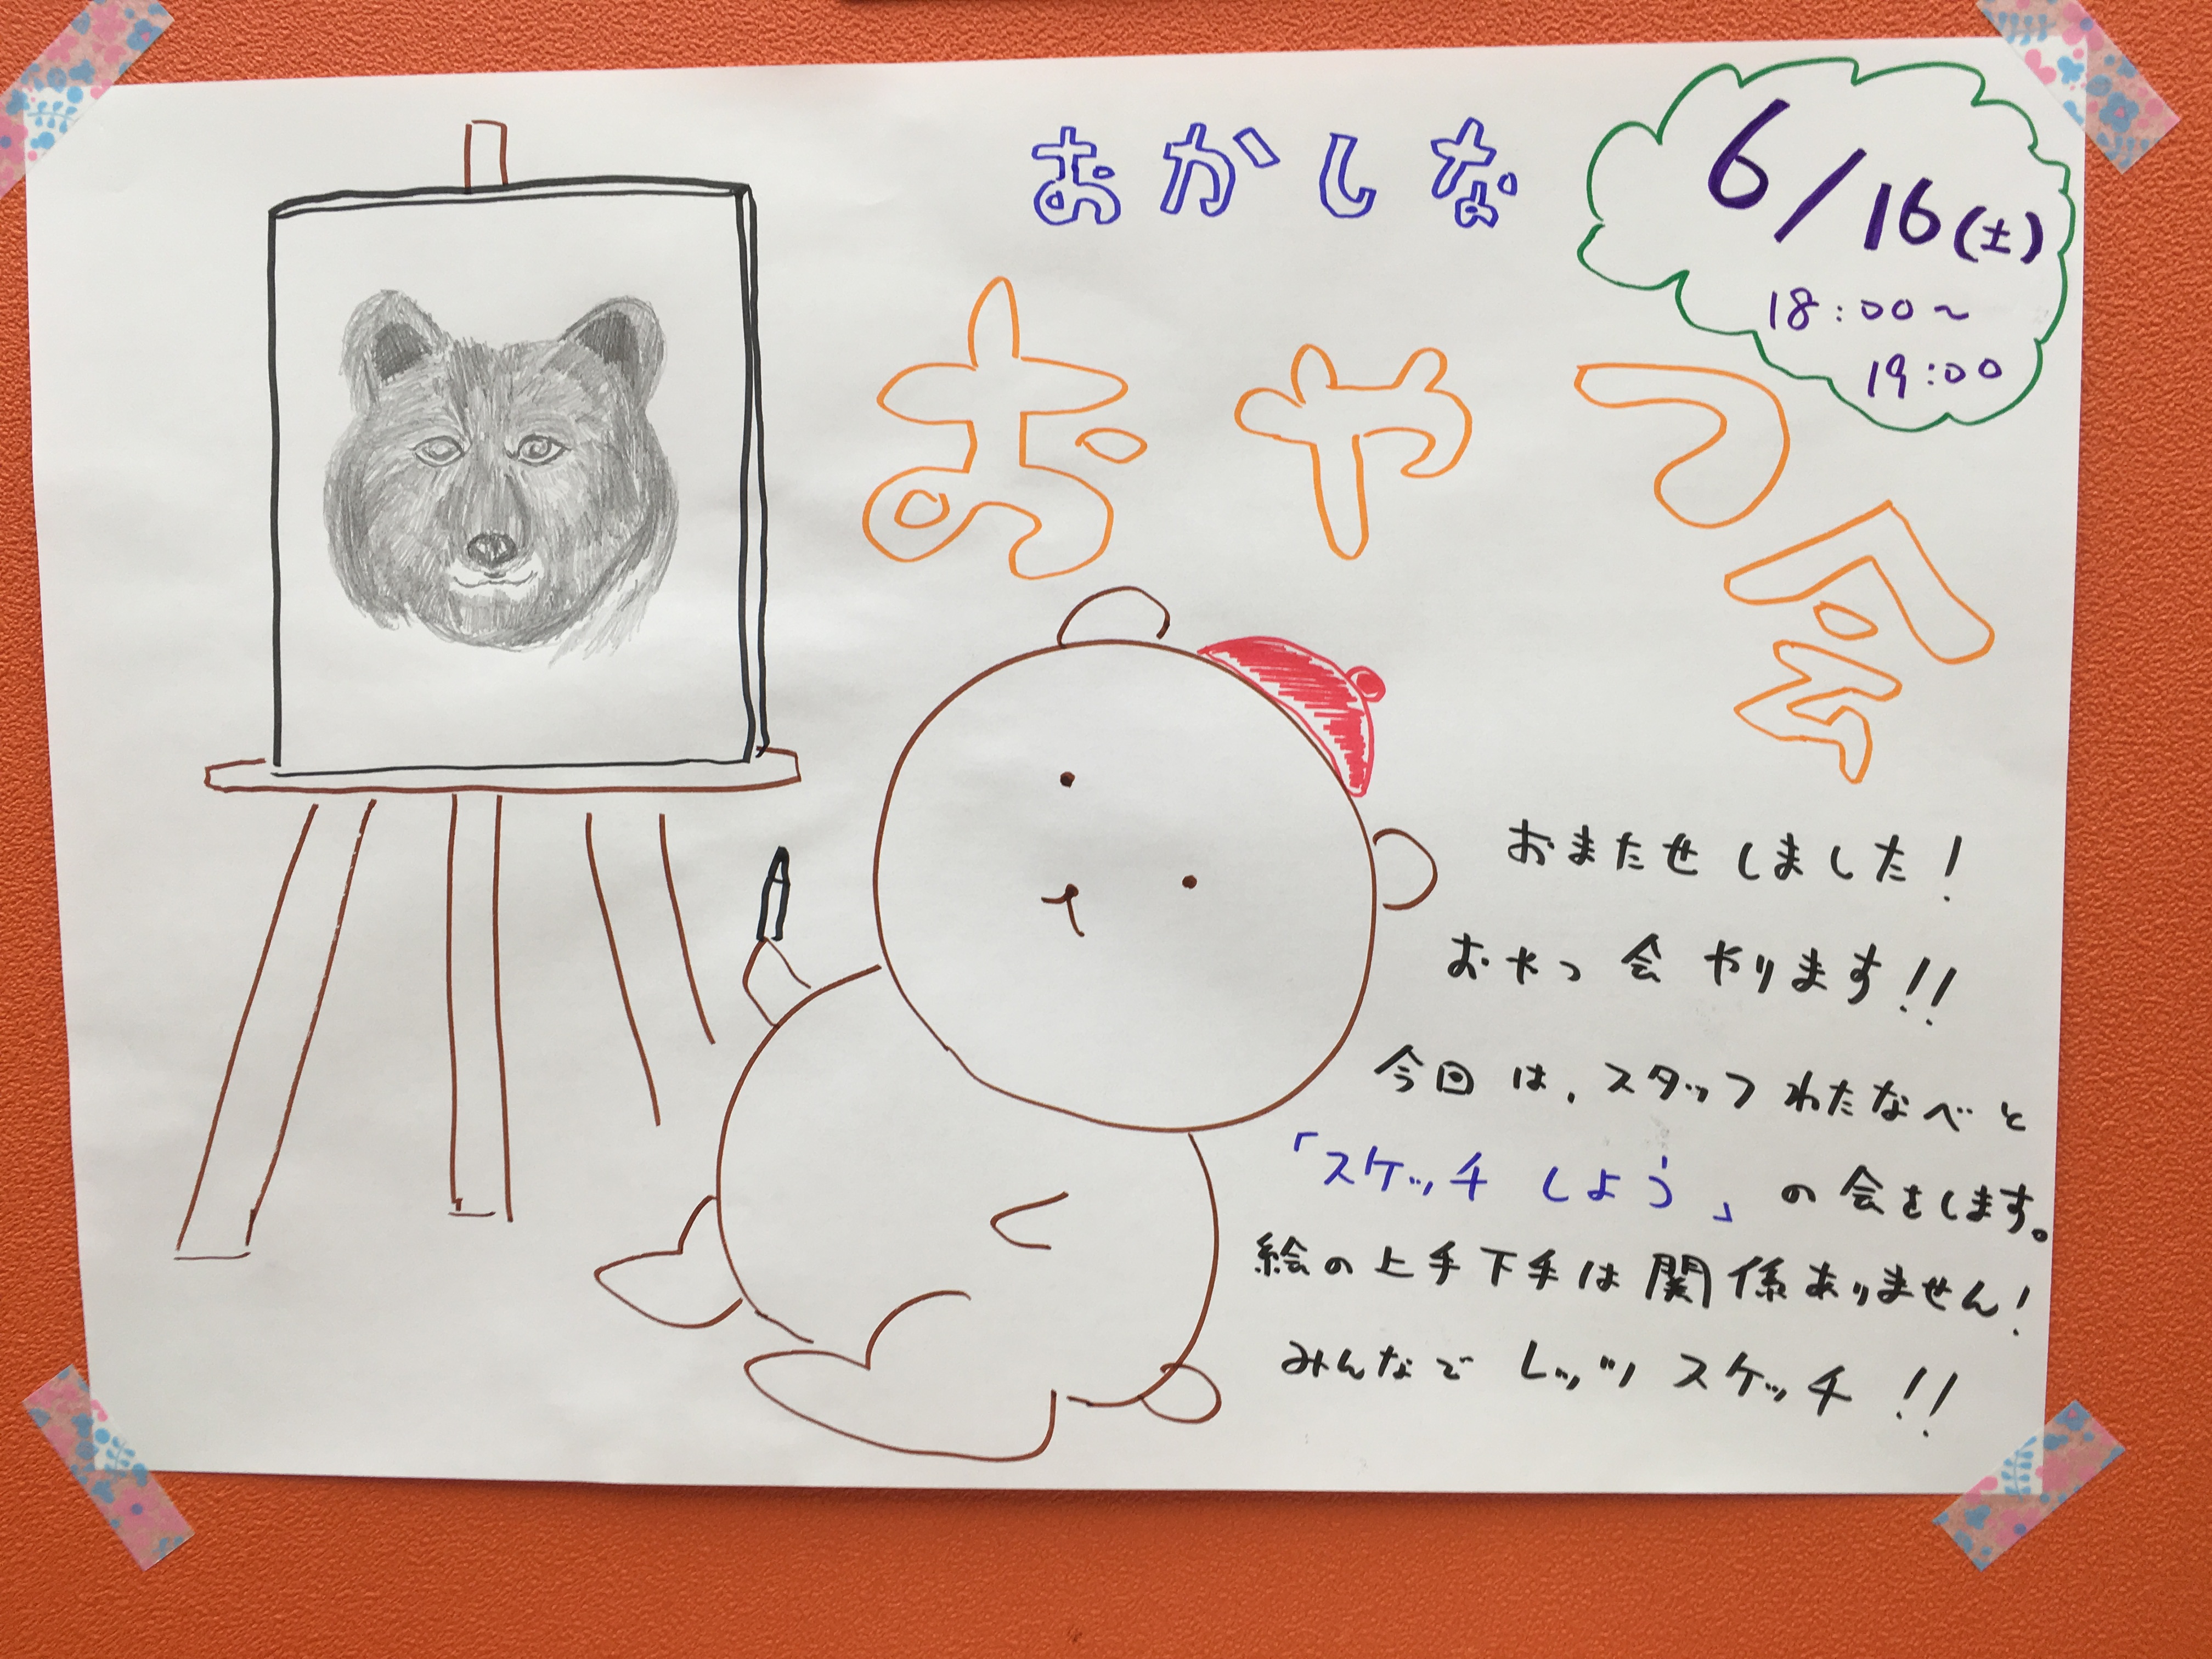 おかしな
おやつ会
6/16(土)
18:00～
19:00
おまたせしました！
おやつ会やります!!
今回は、スタッフわたなべと
「スケッチしよう」の会をします。
絵の上手下手は関係ありません！
みんなでレッツスケッチ!!